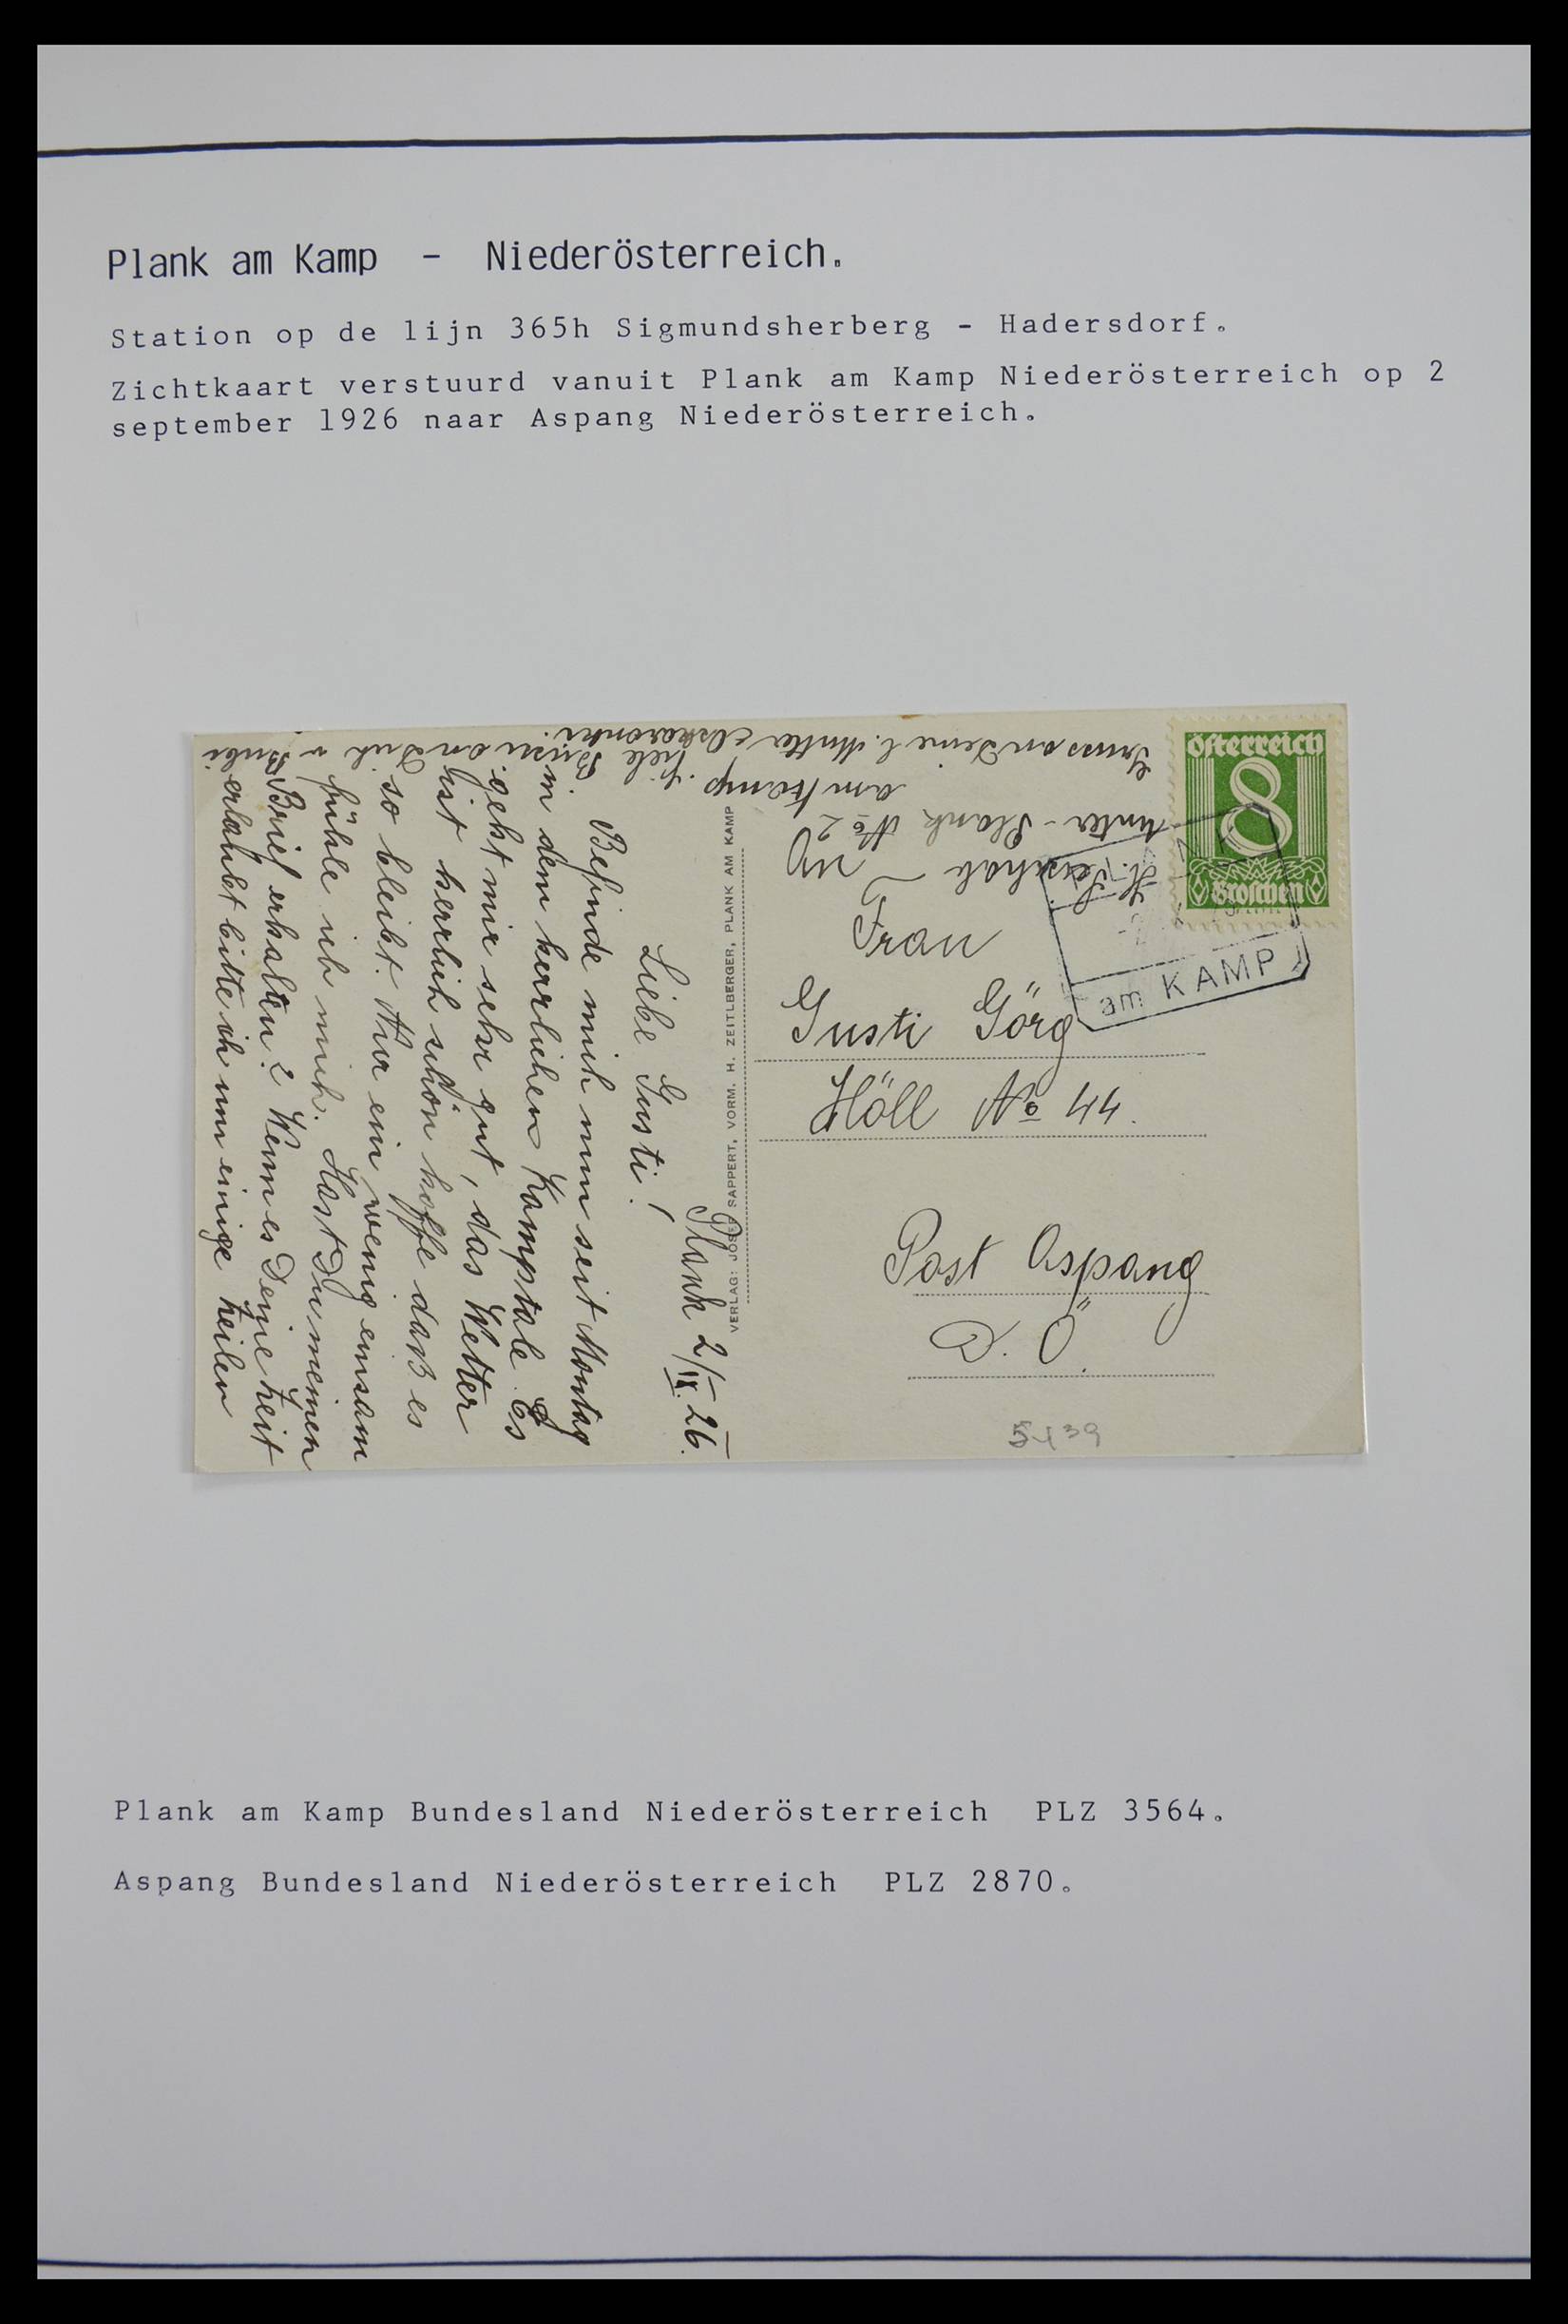 Plank am Kamp - Niederösterreich.
Station op de lijn 365h Sigmundsherberg - Hadersdorf.
Zichtkaart verstuurd vanuit Plank am Kamp Niederösterreich op 2
september 1926 naar Aspang Niederösterreich.
Plank 2/IX. 26.
Liebe Gusti!
Befinde mich nun seit Montag
in dem herrlichen Kamptale. Es
geht mir sehr gut, das Wetter
ist herrlich schön hoffe daß es
so bleibt. Nur ein wenig einsam
fühle ich mich. Hast Du meinen
Brief erhalten? Wenn es Deine Zeit
erlaubt bitte ich um einige Zeilen
Viele Bussi an Dich u Bubi
Gruss an Deine l. Mutter
Unter-Plank No 2
am Kamp.
VERLAG: JOSEF SAPPERT, VORM. H. ZEITLBERGER, PLANK AM KAMP
österreich
8
Groschen
am KAMP
Frau
Gusti Görg
Höll No 44.
Post Aspang
N. Ö.
5439
Plank am Kamp Bundesland Niederösterreich PLZ 3564.
Aspang Bundesland Niederösterreich PLZ 2870.